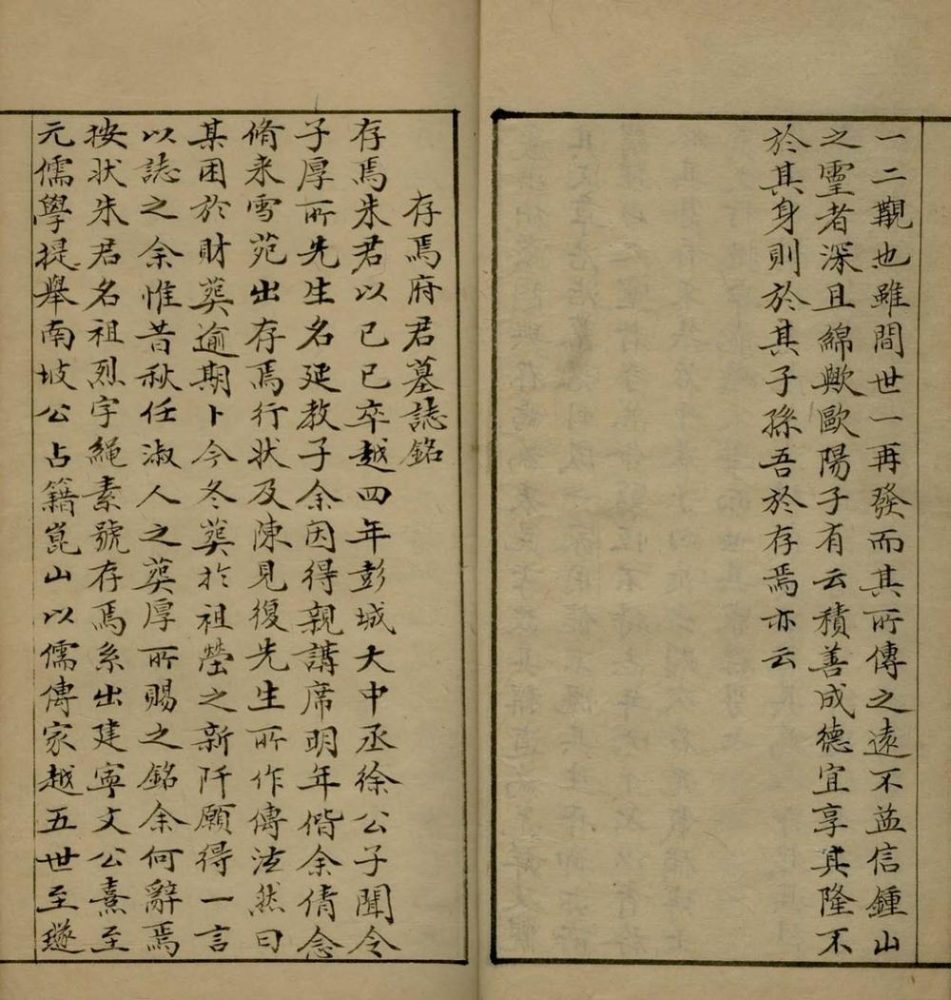 一二覯也雖間世一再發而其所傳之遠不益信鍾山
之靈者深且綿歟歐陽子有云積善成德宜享其隆不
於其身則於其子孫吾於存焉亦云
存焉府君墓誌銘
存焉朱君以己巳卒越四年彭城大中丞徐公子聞令
子厚所先生名延教子余因得親講席明年偕余倩念
脩来雪苑出存焉行狀及陳見復先生所作傳泫然曰
某困於財葬逾期卜今冬葬於祖塋之新阡願得一言
以誌之余惟昔秋任淑人之葬厚所賜之銘余何辭焉
按狀朱君名祖烈字繩素號存焉系出建寧文公熹至
元儒學提舉南坡公占籍崑山以儒傳家越五世至璲